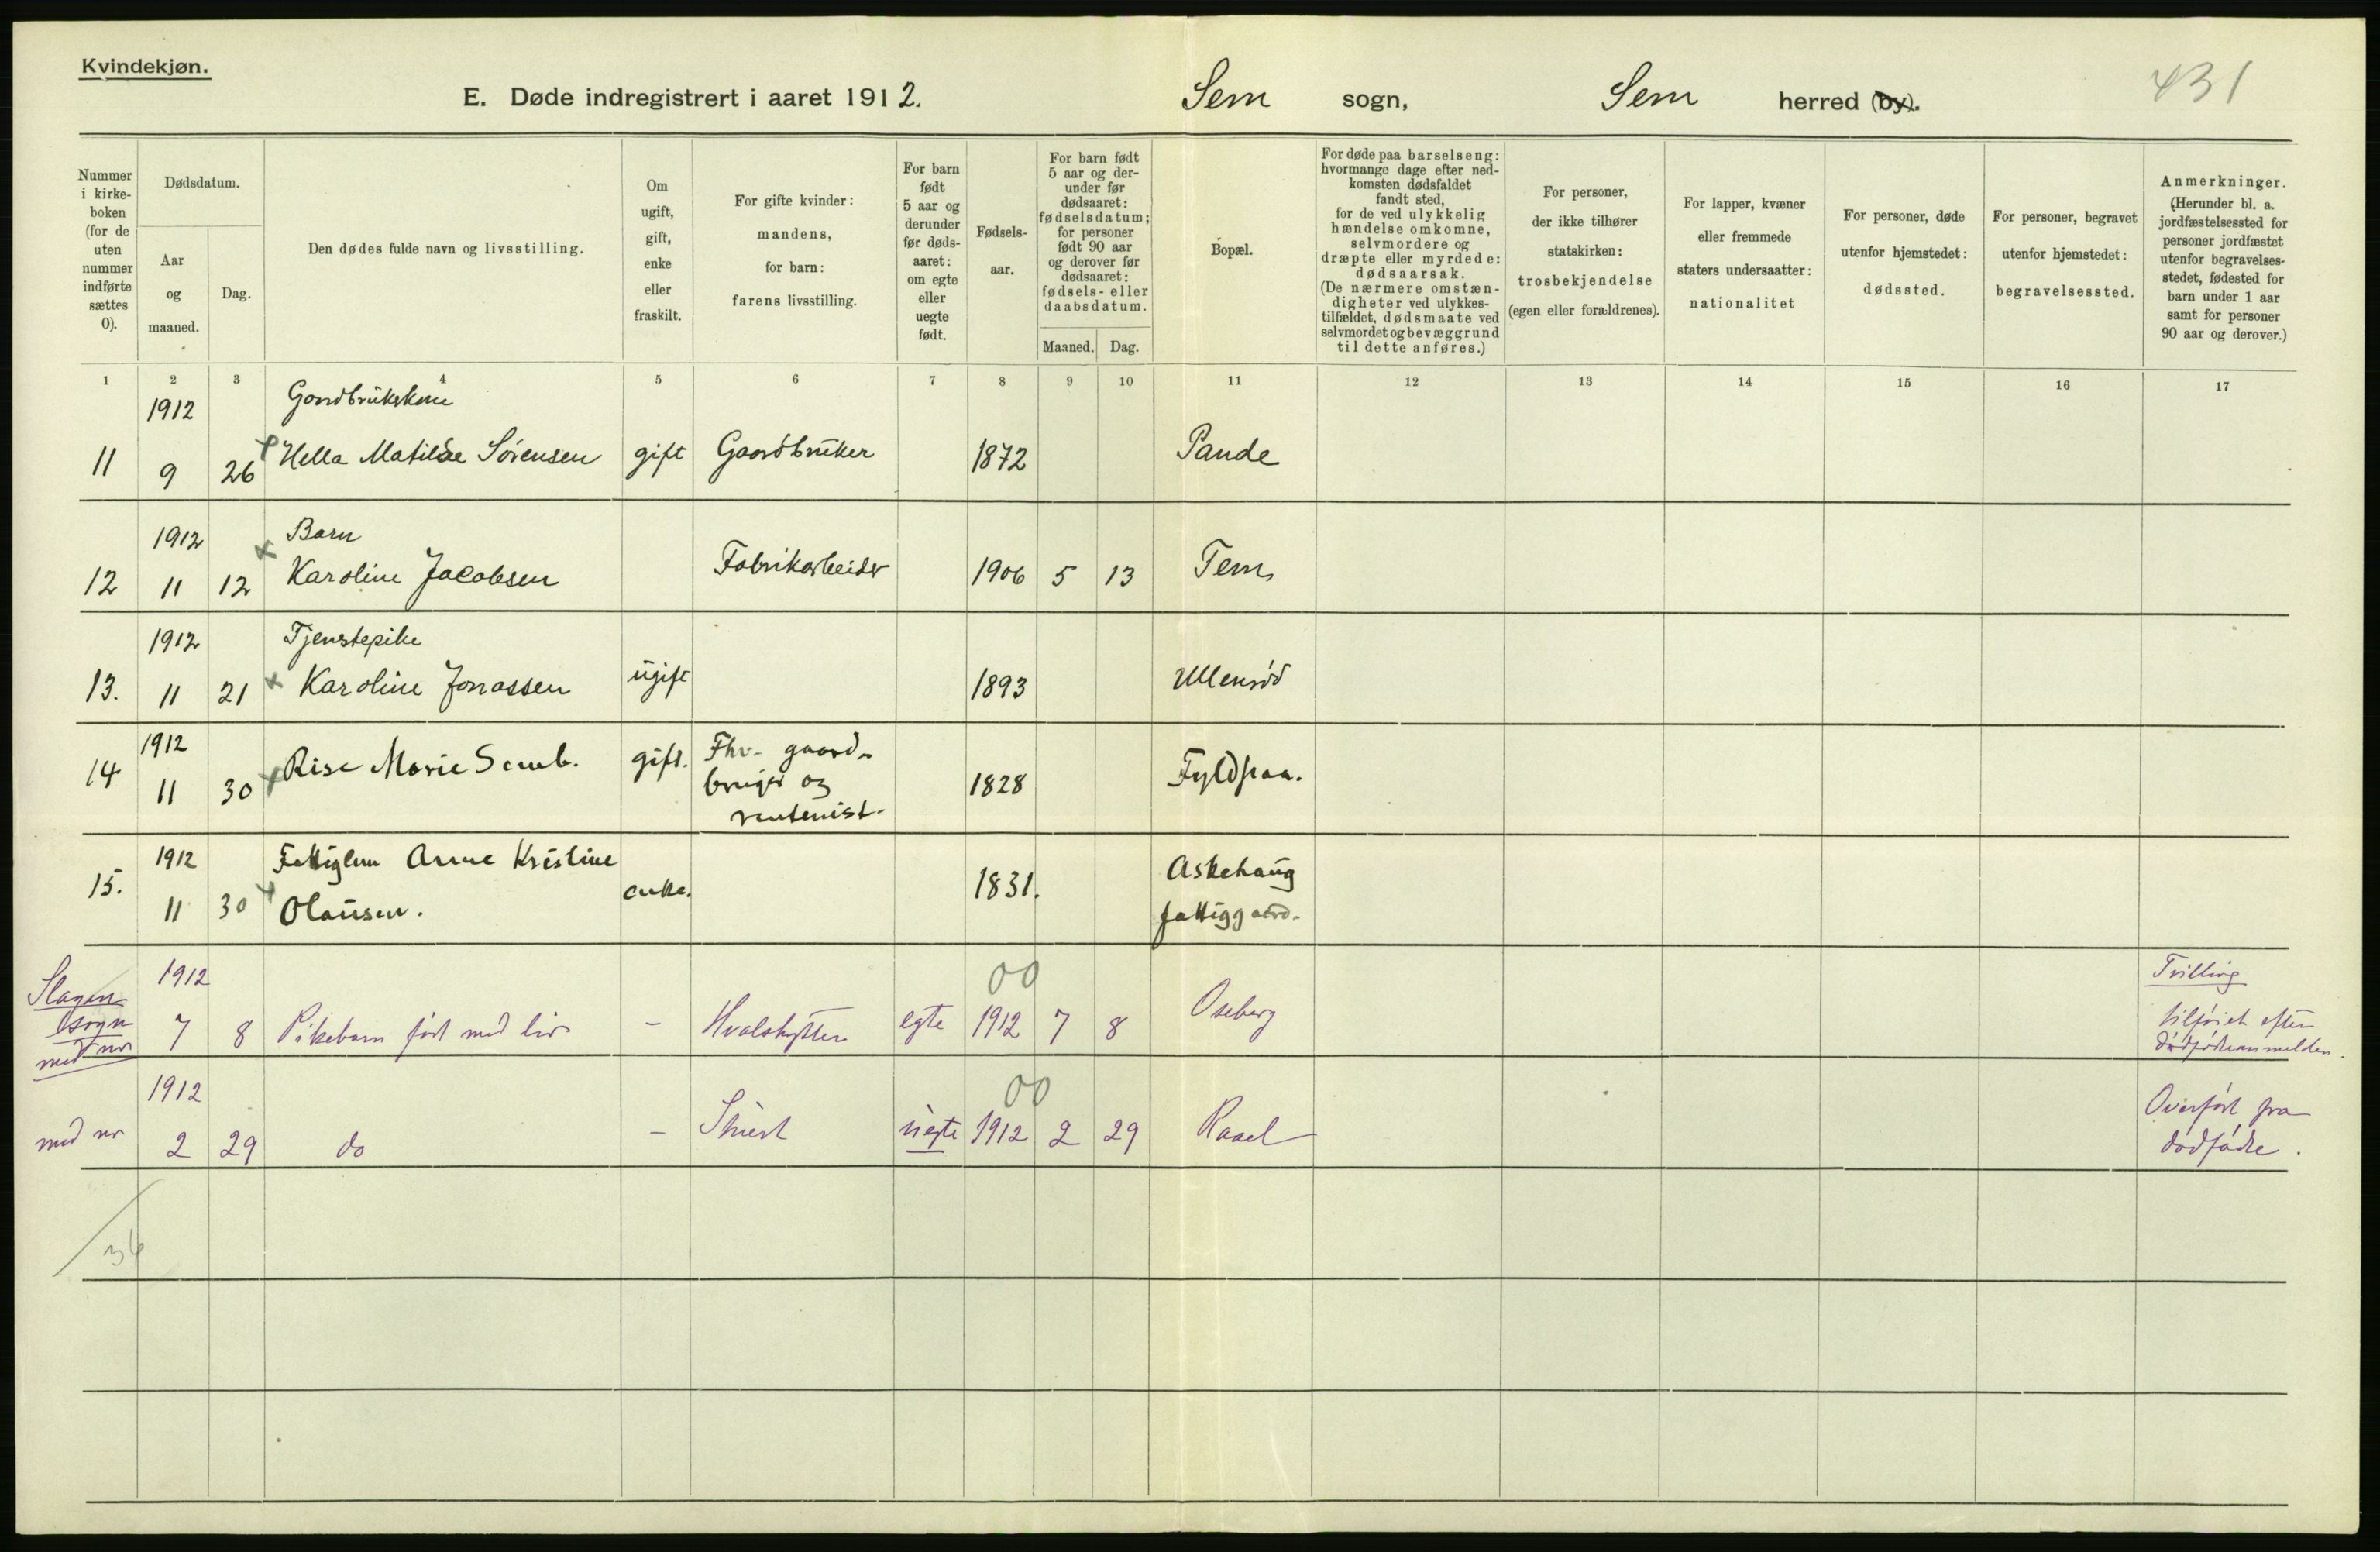 Kvindekjøn.
E. Døde indregistrert i aaret 1912. Sem sogn, Sem herred (by). 431
Nummer i kirke- boken (for de uten nummer indførte sættes 0).
Dødsdatum.
Aar og maaned.
Dag.
Den dødes fulde navn og livsstilling.
Om ugift, gift, enke eller fraskilt.
For gifte kvinder: mandens, for barn: farens livsstilling.
For barn født 5 aar og derunder før døds- aaret: om egte eller uegte født.
Fødsels- aar.
For barn født 5 aar og der- under før dødsaaret: fødselsdatum; for personer født 90 aar og derover før dødsaaret: fødsels- eller daabsdatum.
Maaned. Dag.
Bopæl.
For døde paa barselseng: hvormange dage efter ned- komsten dødsfaldet fandt sted, for de ved ulykkelig hændelse omkomne, selvmordere og dræpte eller myrdede: dødsaarsak. (De nærmere omstæn- digheter ved ulykkes- tilfældet, dødsmaate ved selvmordet og bevæggrund til dette anføres.)
For personer, der ikke tilhører statskirken: trosbekjendelse (egen eller forældrenes).
For lapper, kvæner eller fremmede staters undersaatter: nationalitet
For personer, døde utenfor hjemstedet: dødssted.
For personer, begravet utenfor hjemstedet: begravelsessted.
Anmerkninger. (Herunder bl. a. jordfæstelsessted for personer jordfæstet utenfor begravelses- stedet, fødested for barn under 1 aar samt for personer 90 aar og derover.)
1 2 3 4 5 6 7 8 9 10 11 12 13 14 15 16 17
1912 Gaardbrukskone
11 9 26 Hella Matilde Sørensen gift Gaardbruker 1872 Pande
1912 Barn
12 11 12 Karoline Jacobsen Fabrikarbeider 1906 5 13 Tem
1912 Tjenstepike
13. 11 21 Karoline Jonassen ugift 1893 Ullensrød
1912
14 11 30 Rise Marie Semb. gift. Fhv. gaard-
bruger og
rentenist. 1828 Fyldpaa.
1912 Fattiglem Anne Kristine
15. 11 30 Olausen. enke. 1831. Askehaug
fattiggaard.
Slagen 1912 00 Tvilling
sogn 7 8 Pikebarn født med liv - Hvalskytter egte 1912 7 8 Oseberg tilføiet efter
med nr dødfødteanmelden.
1912 00 Overført fra
med nr 2 29 do - Stuert uegte 1912 2 29 Raael dødfødte.
34